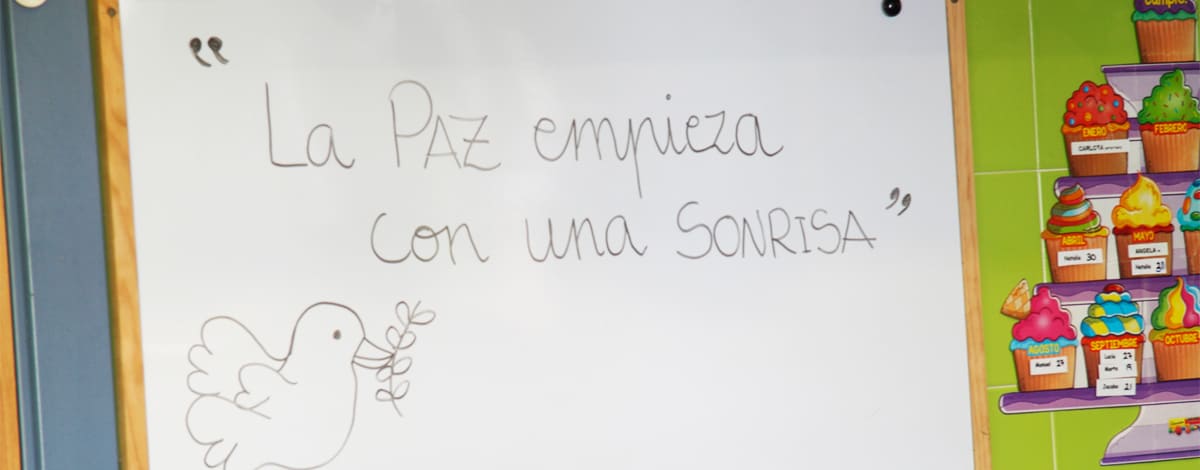 “La PAZ empieza
con una SONRISA”
Cumple.
ENERO
CARLOTA
FEBRERO
ABRIL
Natalia 30
MAYO
ANGELA
Natalia
AGOSTO
Manuel 27
SEPTIEMBRE
Lucía 27
Marta 15
Jacobo 21
OCTUBRE